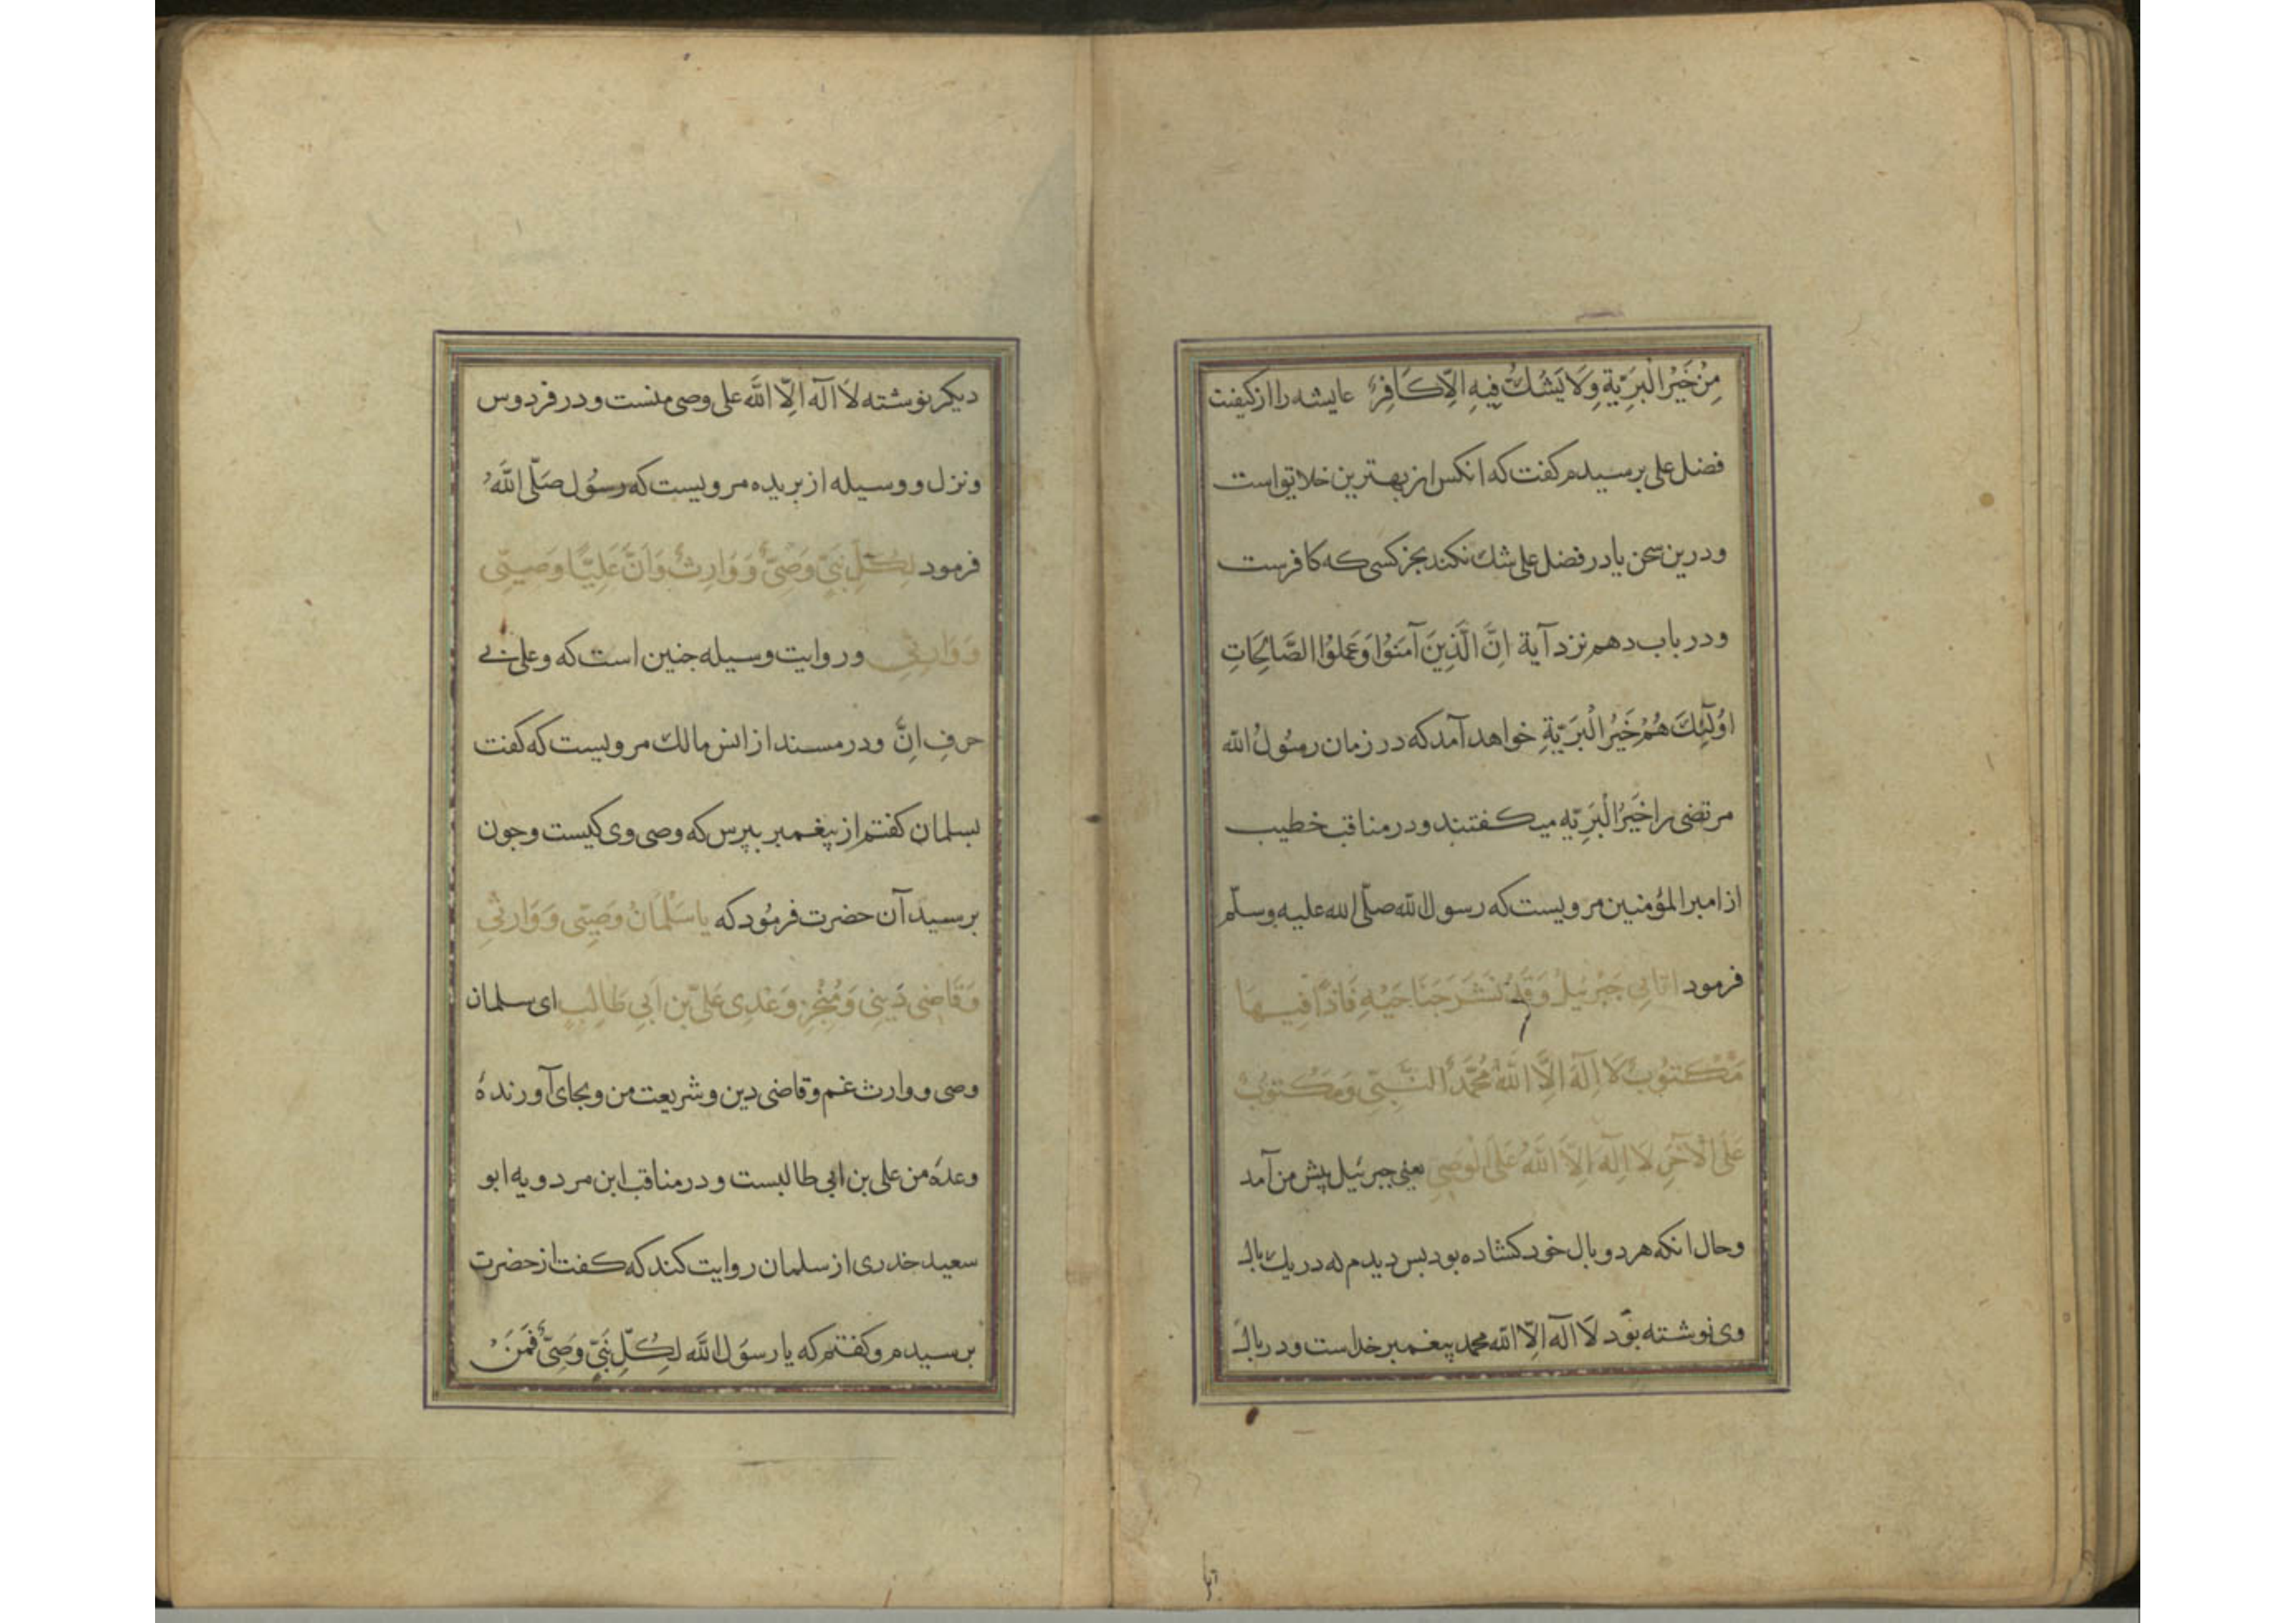 مِنْ خَيْرِ الْبَرِيَّةِ وَلَا يَشُكُّ فِيهِ اِلَّا كَافِرٌ عایشه را از کیفیت
فضل علی برسیدم کفت که انکس از بهترین خلایق است
ودرین سخن یا در فضل علی شك نکند بجز کسی که کافرست
ودر باب دهم نزد آیة اِنَّ الَّذِينَ آمَنُوا وَعَمِلُوا الصَّالِحَاتِ
اُولٰٓئِكَ هُمْ خَيْرُ الْبَرِيَّةِ خواهد آمد که در زمان رسُولُ الله
مرتضی را خَيْرُ الْبَرِيّه میکفتند ودر مناقب خطیب
از امیر المؤمنین مرویست که رسول الله صلّی الله علیه وسلّم
فرمود اَتَانِي جَبْرَئيلُ وَقَدْ نَشَرَ جَنَاحَيْهِ فَاِذًا فِيهَا
مَكْتُوبٌ لَا اِلٰهَ اِلَّا اللّٰهُ مُحَمَّدٌ النَّبِيّ وَمَكْتُوبٌ
عَلَى الْآخَرِ لَا اِلٰهَ اِلَّا اللّٰهُ عَلَی الْوَصِيّ یعنی جبرئیل پیش من آمد
وحال انکه هر دو بال خود کشاده بود بس دیدم که در یك بال
وی نوشته بود لَا اله اِلّا الله محمد پیغمبر خداست ودر بال
دیکر نوشته لَا اله اِلّا الله علی وصی منست ودر فردوس
ونزل ووسیله از بریده مرویست که رسُول صَلَّی اللهُ
فرمود لِكُلِّ نَبِيٍّ وَصِيٌّ وَوَارِثٌ وَاَنَّ عَلِيًّا وَصِيِّي
وَوَارِثِي ودر روایت وسیله جنین است که وعلی بی
حرفِ اِنَّ ودر مسند از انس مالك مرویست که کفت
بسلمان کفتم از پیغمبر بپرس که وصی وی کیست وجون
برسید آن حضرت فرمُود که يَا سَلْمَانُ وَصِيِّي وَوَارِثِي
وَقَاضِي دَيْنِي وَمُنْجِزُ وَعْدِی عَلِیّ بْن اَبِي طَالِبٍ ای سلمان
وصی ووارث غم وقاضی دین وشریعت من وبجای آورندهٔ
وعدهٔ من علی بن ابی طالبست ودر مناقب ابن مردویه ابو
سعید خدری از سلمان روایت کند که کفت از حضرت
برسیدم وکفتم که یا رسوَل اللَّه لِكُلِّ نَبِيٍّ وَصِيٌّ فَمَنْ